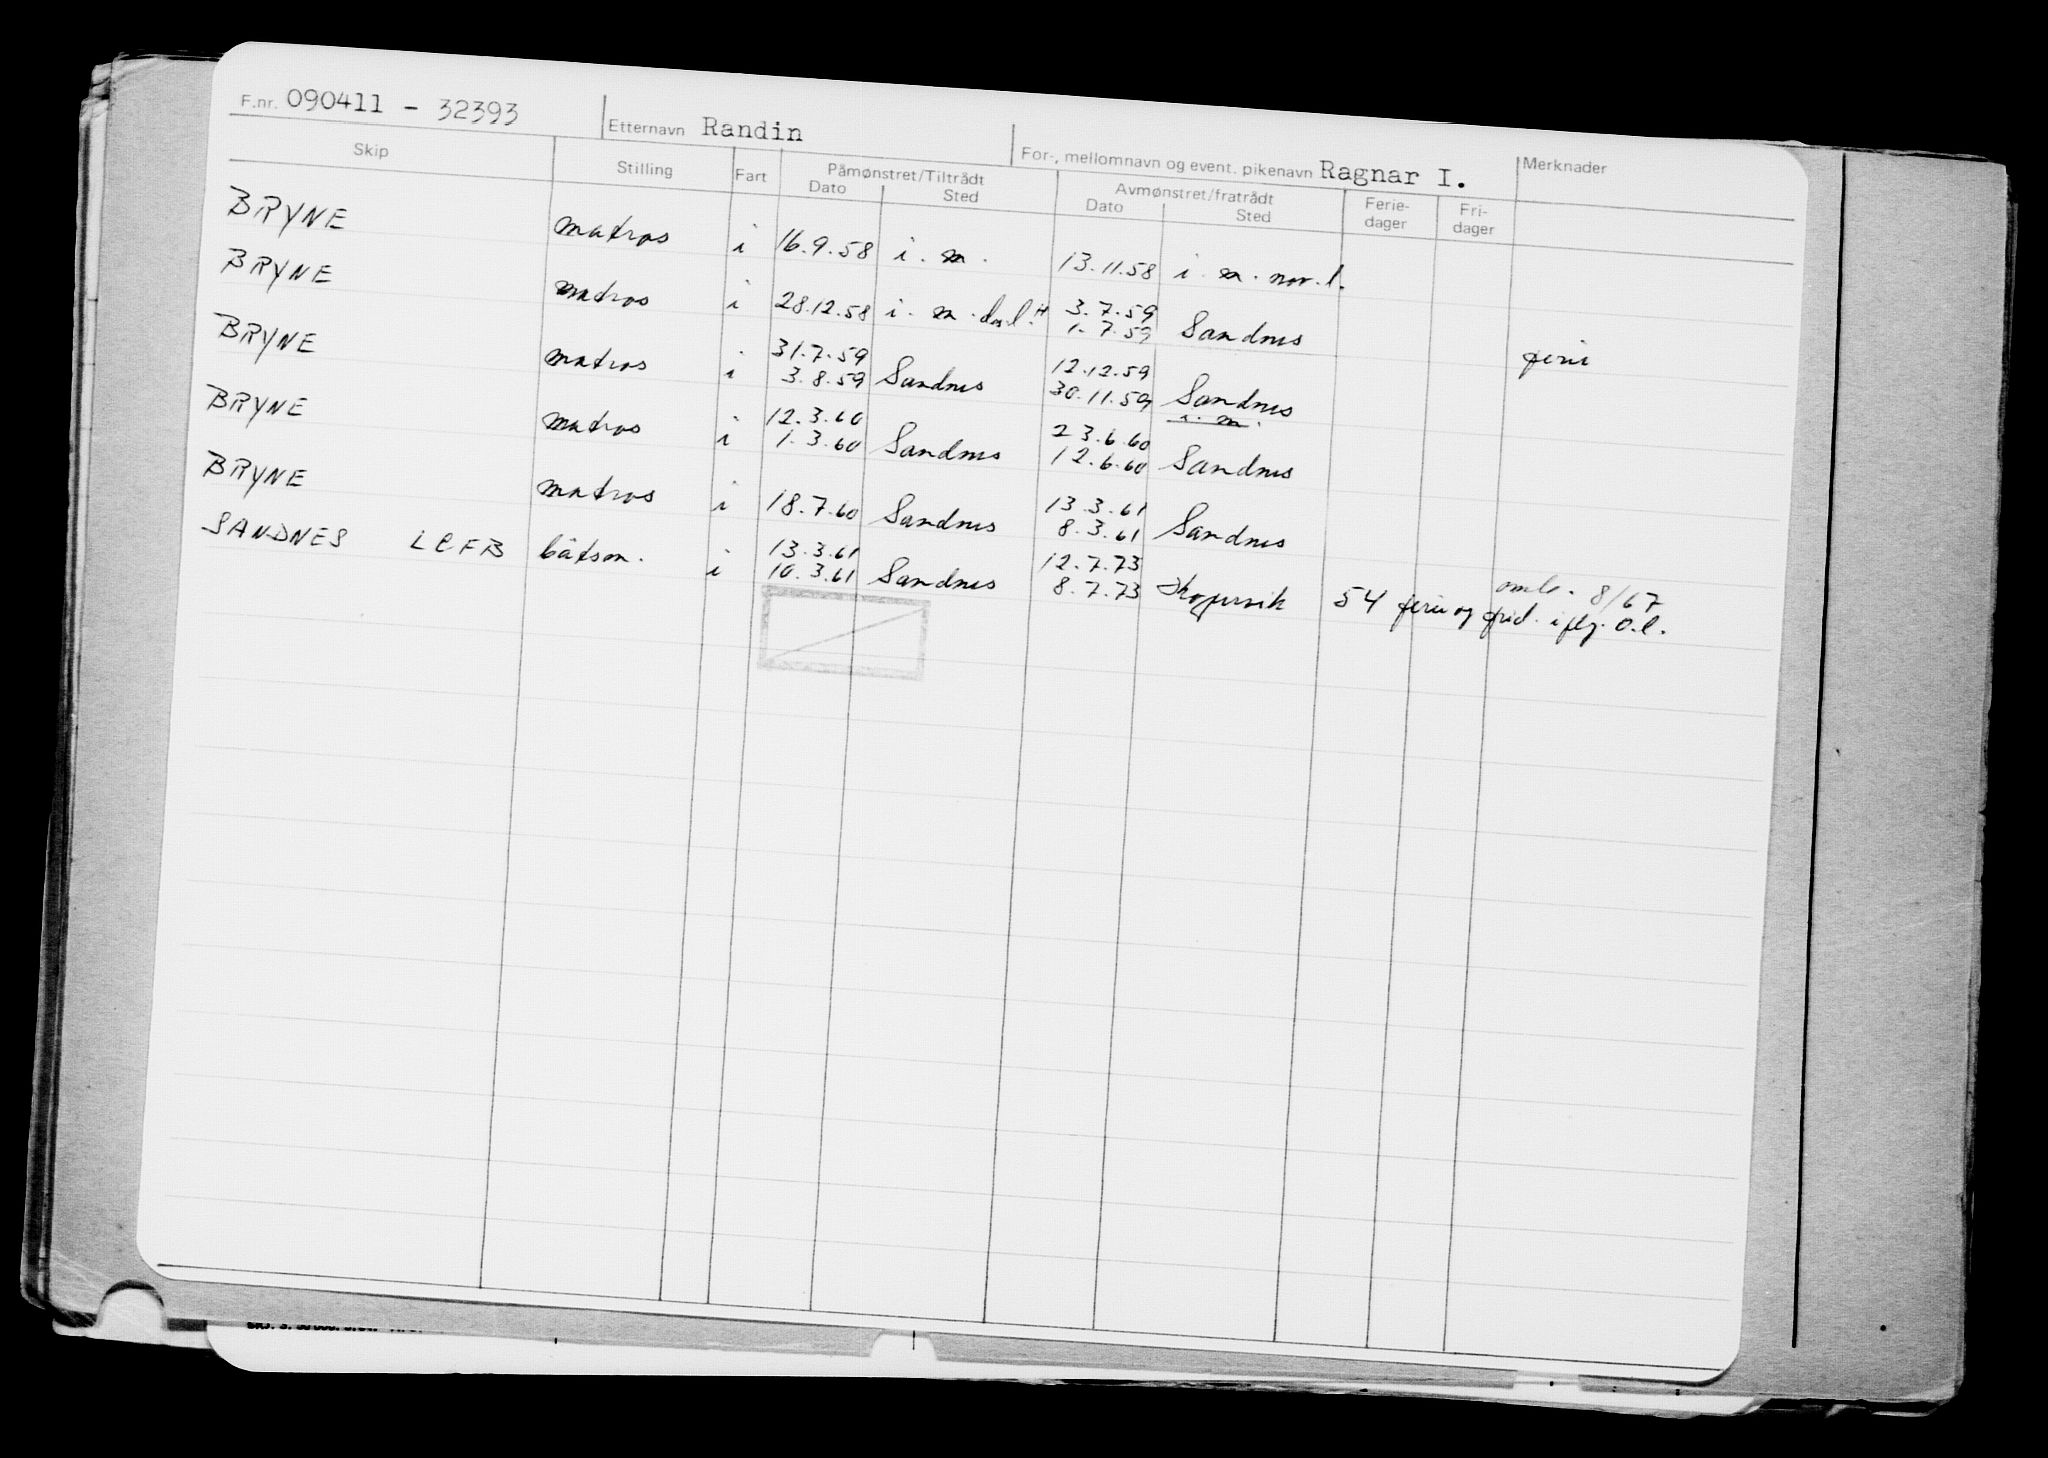 F.nr. 090411 - 32393 Etternavn Randin For-, mellomnavn og event. pikenavn Ragnar I. Merknader
Skip Stilling Fart Påmønstret/Tiltrådt Avmønstret/fratrådt Ferie- Fri-
Dato Sted Dato Sted dager dager
BRYNE matros i 16.9.58 i. m. 13.11.58 i. m. nor. l.
BRYNE matros i 28.12.58 i. m. 3.7.59
1.7.59 Sandnes ferie
BRYNE matros i 31.7.59 12.12.59
3.8.59 Sandnes 30.11.59 Sandnes
i. m.
BRYNE matros i 12.3.60 23.6.60
1.3.60 Sandnes 12.6.60 Sandnes
BRYNE matros i 18.7.60 Sandnes 13.3.61
8.3.61 Sandnes
SANDNES LCFB båtsm. i 13.3.61 12.7.73 8/67
10.3.61 Sandnes 8.7.73 54 ferie og frid. i flg. o.l.